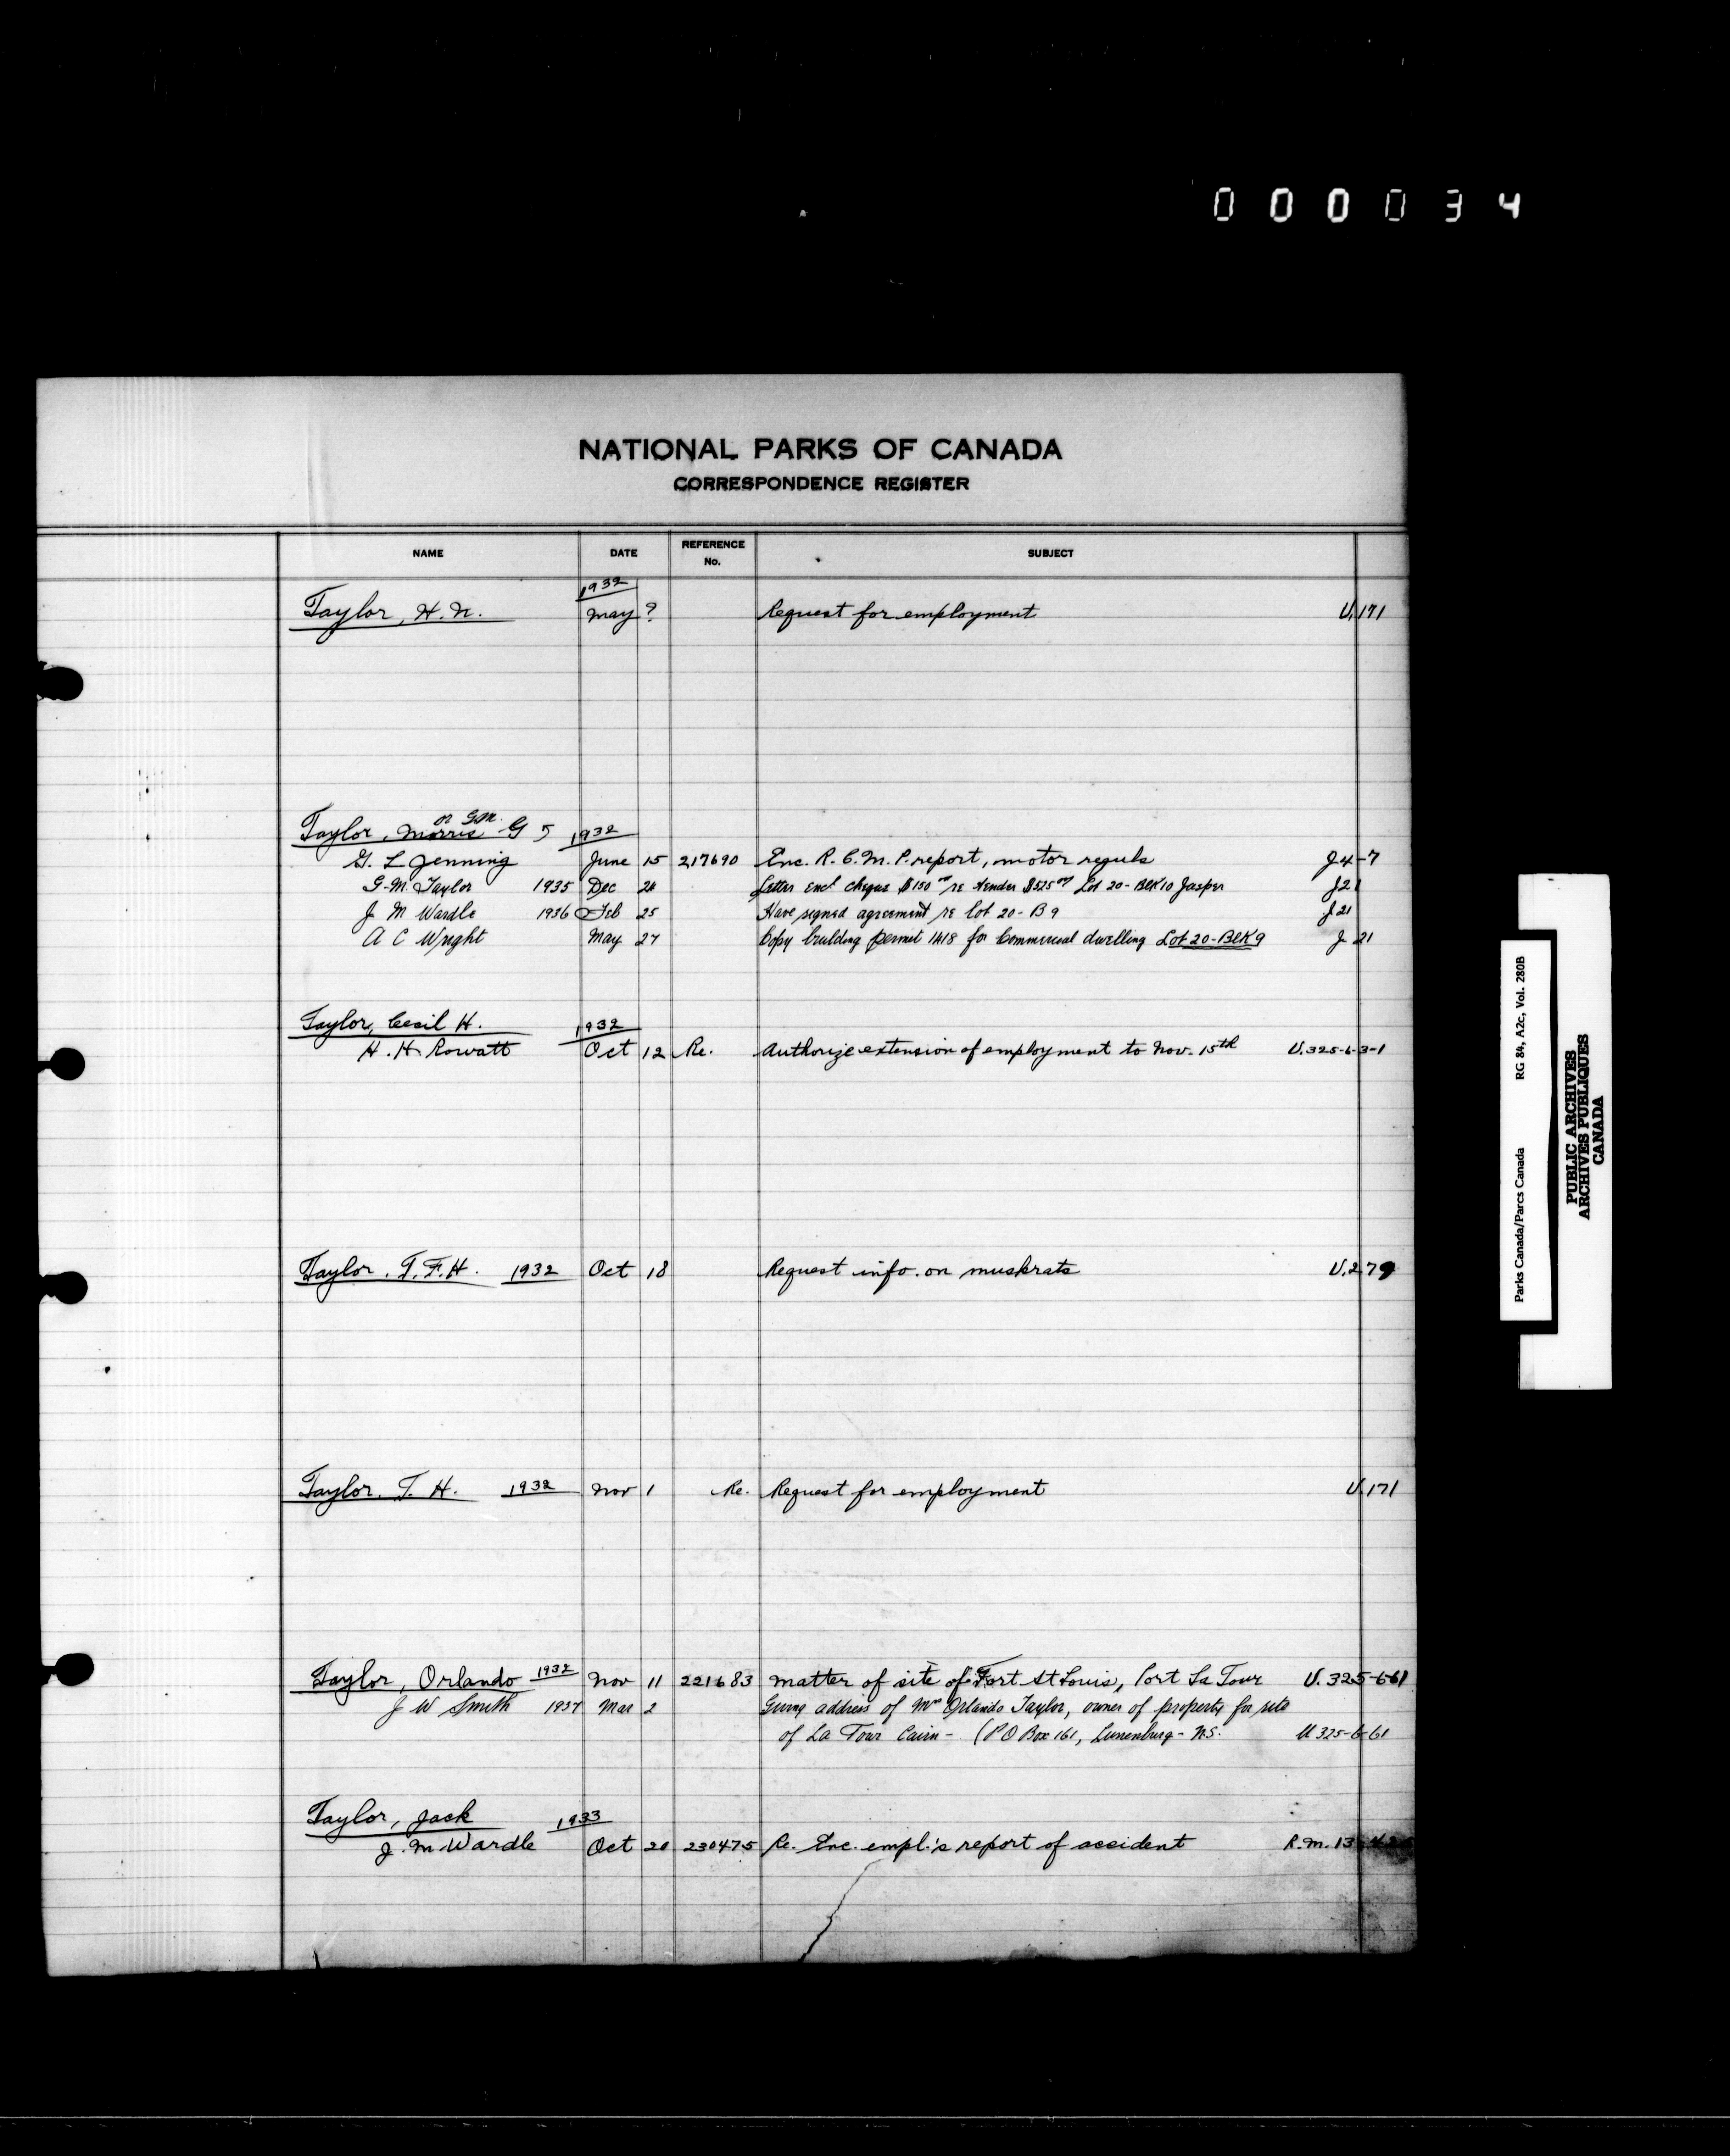 000034
NATIONAL PARKS OF CANADA
CORRESPONDENCE REGISTER
NAME DATE REFERENCE No. SUBJECT
1932
Taylor, H. N. May ? Request for employment U.171
or G.M.
Taylor, Morris G 1932
G. L Jenning June 15 217690 Enc. R.C.M.P. report, motor reguls J4-7
G. M. Taylor 1935 Dec 24 Letter encl cheque $150 00 re tender $525 00 Lot 20- Blk 10 Jasper J21
J M Wardle 1936 Feb 25 Have signed agreement re lot 20-B9 J21
A C Wright May 27 Copy building permit 1418 for Commercial dwelling Lot 20-Blk 9 J 21
Taylor, Cecil H. 1932
H. H. Rowatt Oct 12 Re. Authorize extension of employment to Nov. 15th U.325-6-3-1
Taylor. T. F. H. 1932 Oct 18 Request info. on muskrats U.279
Taylor. T. H. 1932 Nov 1 Re. Request for employment U.171
Taylor, Orlando 1932 Nov 11 221683 matter of site of Fort St Louis, Port La Tour U.325-6-61
J W Smith 1937 Mar 2 Giving address of Mrs Orlando Taylor, owner of property for site
of La Tour Cairn - (P O Box 161, Lunenburg - N.S. U 325-6-61
Taylor, Jack 1933
J. M Wardle Oct 20 230475 Re. Enc. empl.'s report of accident R.M. 13
Parks Canada/Parcs Canada RG 84, A2c, Vol. 280B
PUBLIC ARCHIVES
ARCHIVES PUBLIQUES
CANADA